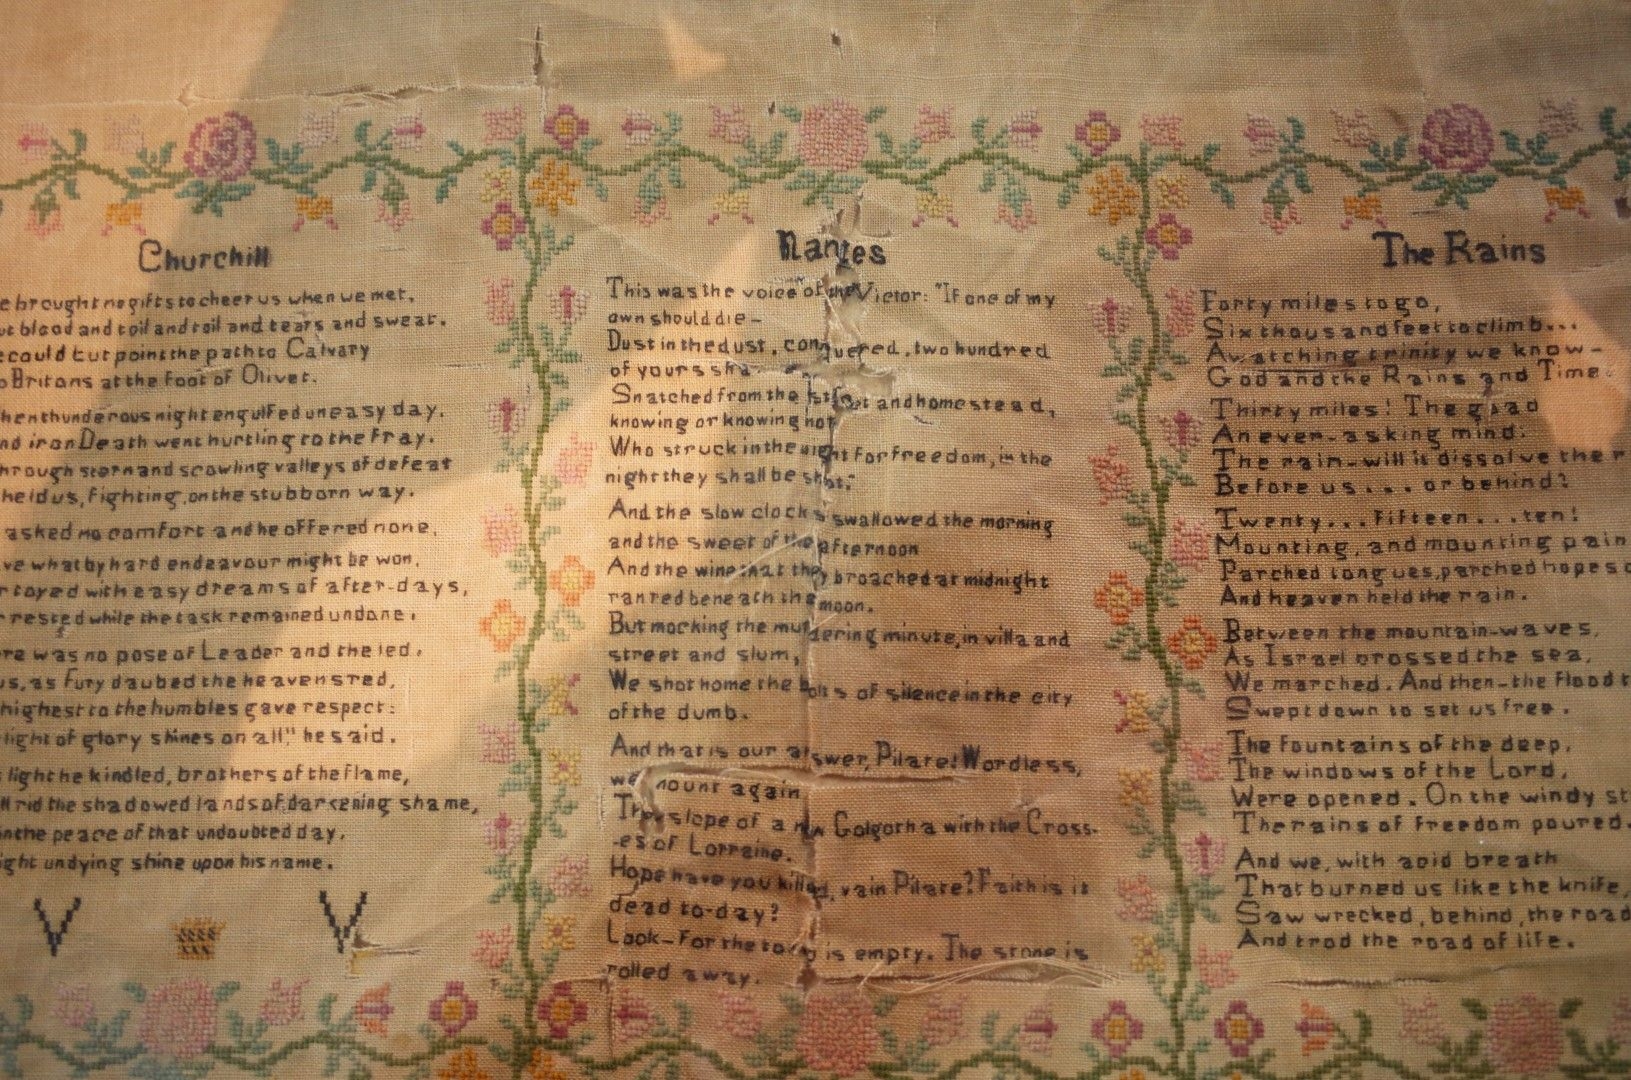 Churchill
e brought no gifts to cheer us when we met,
ut blood and toil and toil and tears and sweat.
e could but point the path to Calvary
o Britons at the foot of Olivet.
hen thunderous night engulfed uneasy day,
nd iron Death went hurtling to the fray.
hrough stern and scowling valleys of defeat
held us, fighting, on the stubborn way.
asked no comfort and he offered none,
ve what by hard endeavour might be won,
r toyed with easy dreams of after-days,
r rested while the task remained undone.
ere was no pose of Leader and the led.
us, as Fury daubed the heavens red,
highest to the humbles gave respect:
light of glory shines on all," he said.
light he kindled, brothers of the flame,
ll rid the shadowed lands of darkening shame,
in the peace of that undoubted day,
ight undying shine upon his name.
V V
Nantes
This was the voice of the Victor: "If one of my
own should die-
Dust in the dust, conquered, two hundred
of yours sha
Snatched from the and homestead,
knowing or knowing not
Who struck in the night for freedom, in the
night they shall be shot."
And the slow clocks swallowed the morning
and the sweet of the afternoon
And the wine that they broached at midnight
ran red beneath the moon.
But mocking the murdering minute, in villa and
street and slum,
We shot home the bolts of silence in the city
of the dumb.
And that is our answer, Pilate! Wordless,
we mount again
The slope of a new Golgotha with the Cross-
-es of Lorraine.
Hope have you killed, vain Pilate? Faith is it
dead to-day?
Look-for the tomb is empty. The stone is
rolled away.
The Rains
Forty miles to go,
Six thousand feet to climb...
A watching trinity we know-
God and the Rains and Time.
Thirty miles! The goad
An ever-asking mind:
The rain-will it dissolve the r
Before us... or behind?
Twenty...fifteen...ten!
Mounting, and mounting pain
Parched tongues, parched hopes
And heaven held the rain.
Between the mountain-waves,
As Israel crossed the sea,
We marched. And then-the flood t
Swept down to set us free.
The fountains of the deep,
The windows of the Lord,
Were opened. On the windy st
The rains of freedom poured.
And we, with acid breath
That burned us like the knife,
Saw wrecked, behind, the road
And trod the road of life.